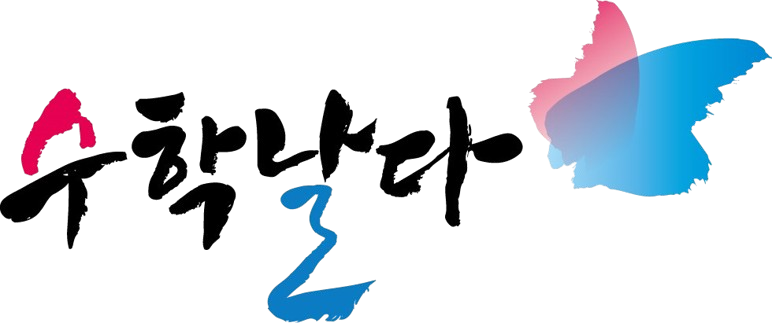 수학날다